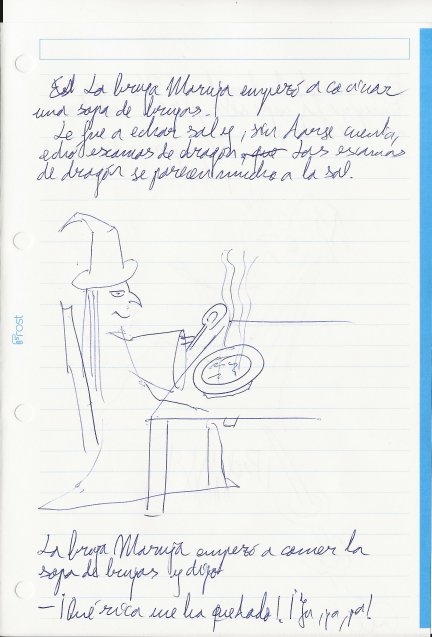 La bruja Maruja empezó a cocinar
una sopa de brujas.
Le fue a echar sal y, sin darse cuenta,
echó escamas de dragón. Las escamas
de dragón se parecen mucho a la sal.
frost
La bruja Maruja empezó a comer la
sopa de brujas y dijo:
— ¡Qué rica me ha quedado! ¡Ja, ja, ja!